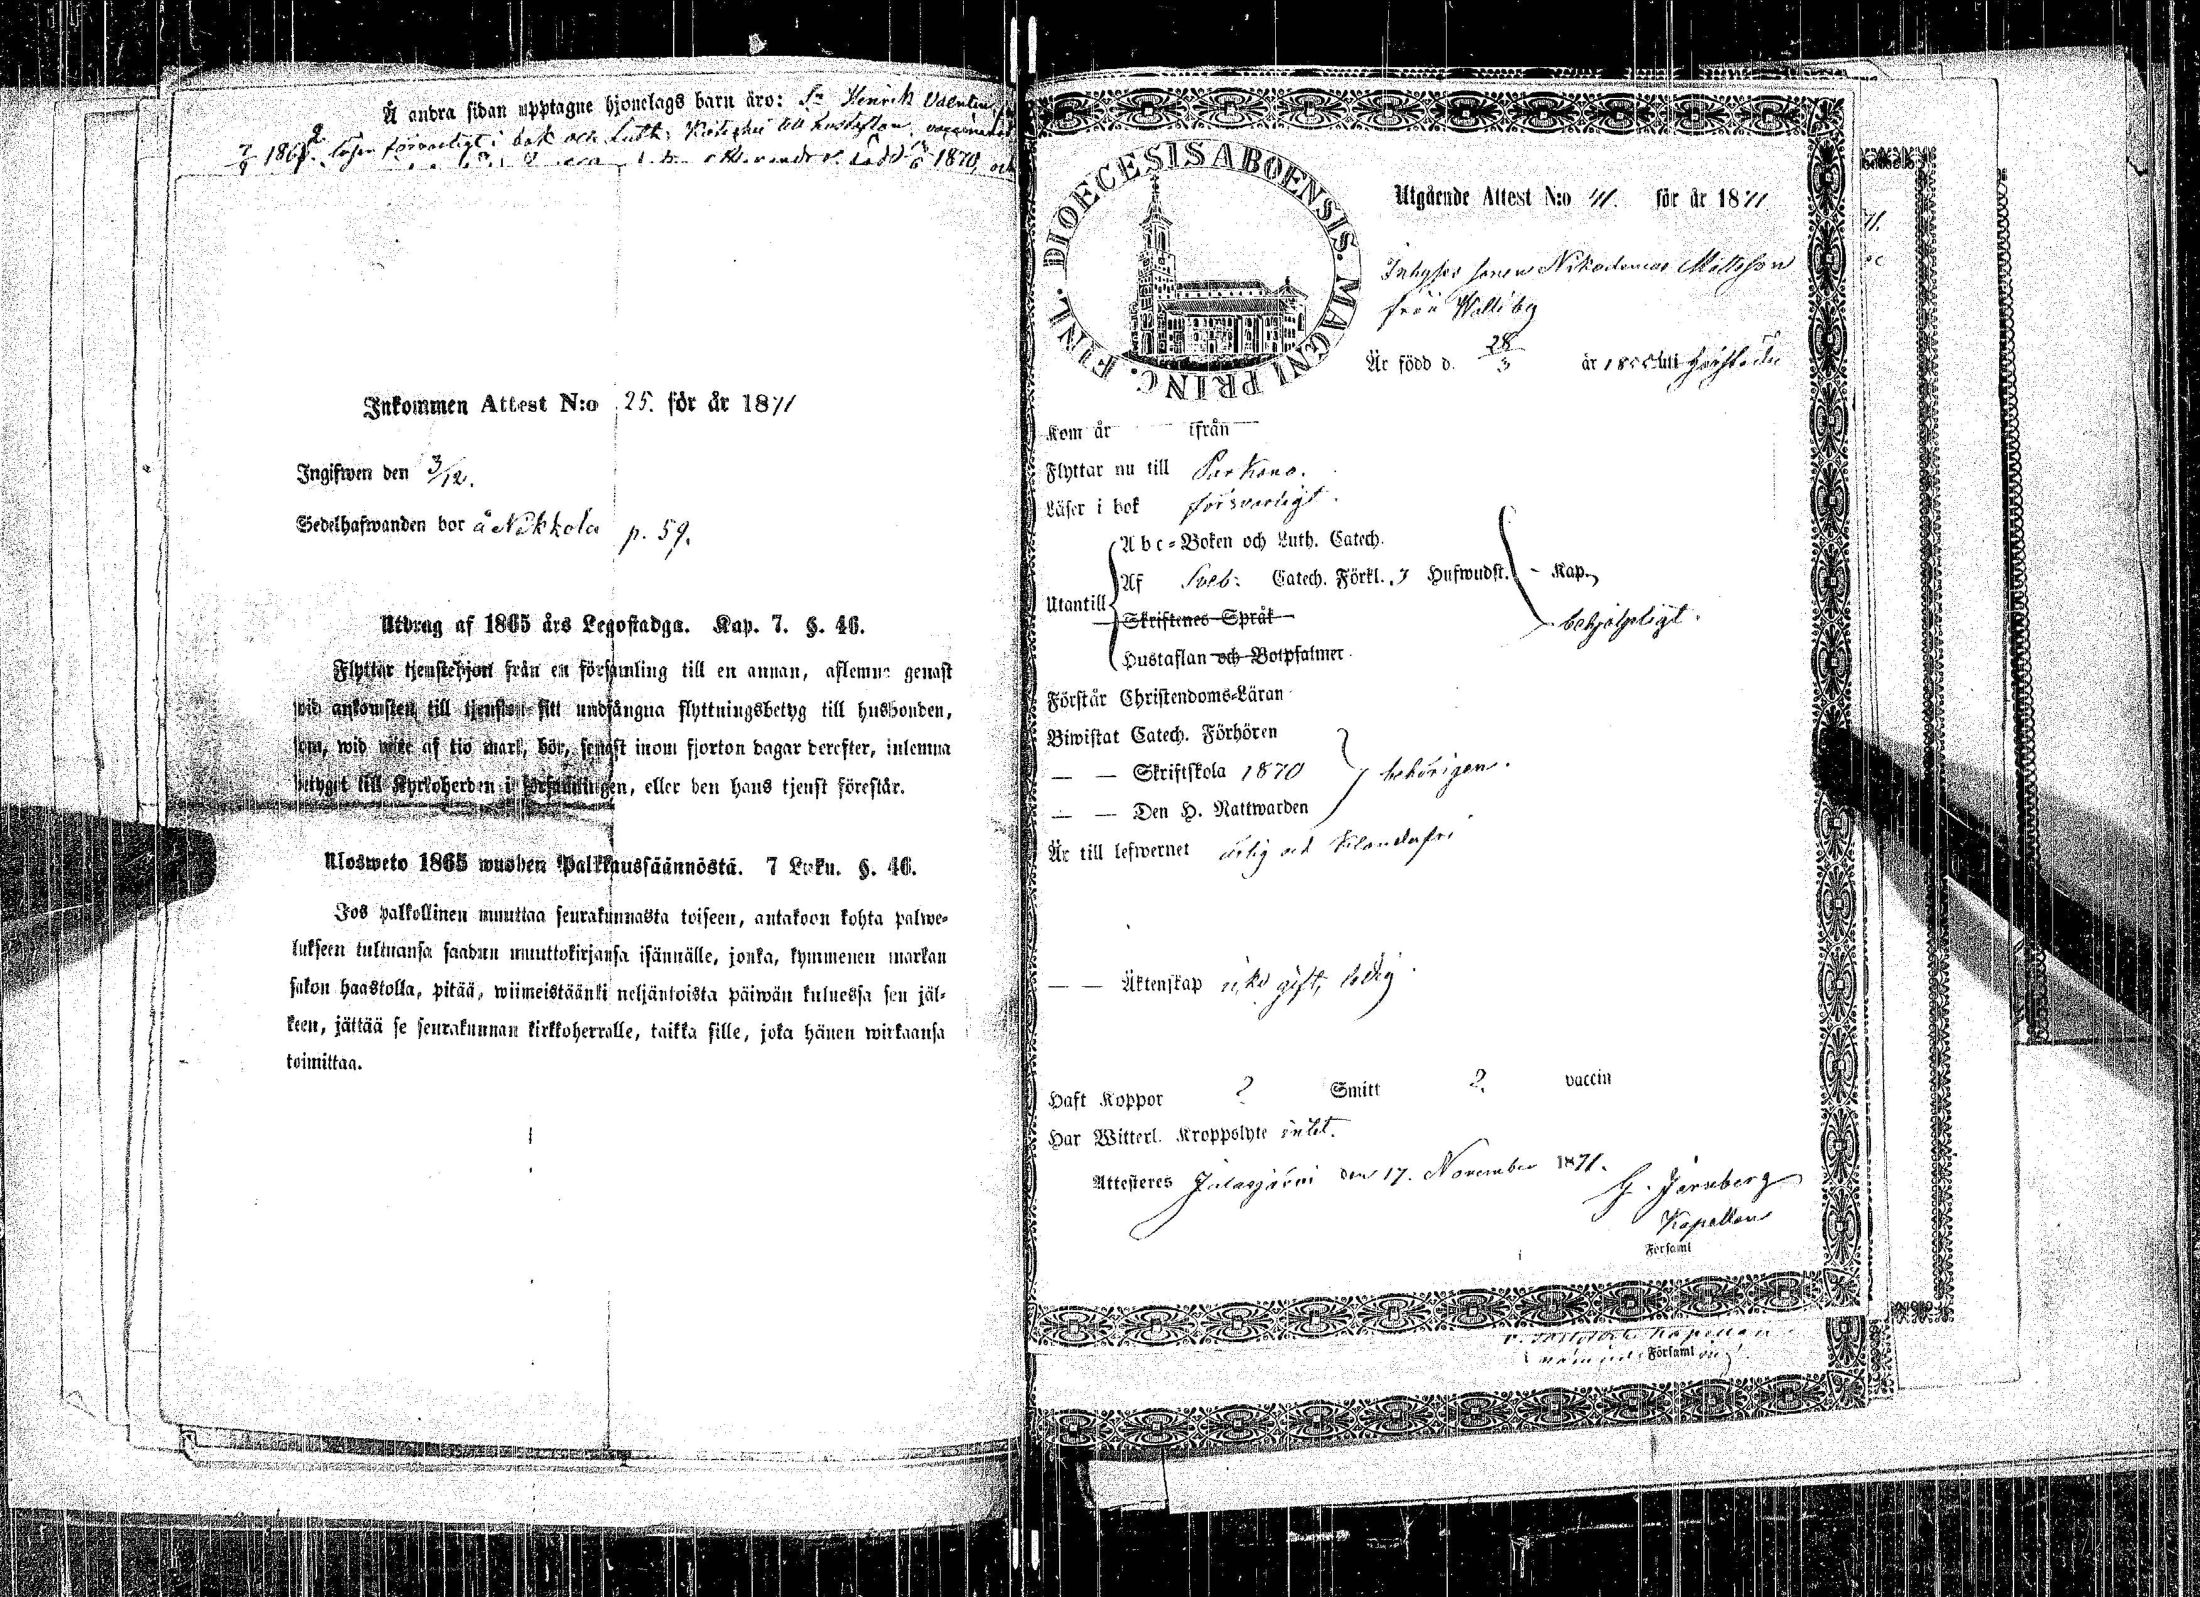 Å andra sidan upptagne hjonelags barn äro: Sn Henrik Valentin
1862. läser försvarligt i bok och Luth: till hustaflan, vaccinerad
1870, och
Inkommen Attest N:o 25. för år 1871
Ingifwen den 3/12.
Sedelhafwanden bor å Nikkola p. 59.
Utdrag af 1865 års Legostadga. Kap. 7. §. 46.
Flyttar tjenstehjon från en församling till en annan, aflemne genast
wid ankomsten till tjensten sitt undfångna flyttningsbetyg till husbonden,
som, wid wite af tio mark, bör, senast inom fjorton dagar derefter, inlemna
betyget till Kyrkoherden i församlingen, eller den hans tjenst förestår.
Ulosweto 1865 wuoden Palkkaussäännöstä. 7 Luku. §. 46.
Jos palkollinen muuttaa seurakunnasta toiseen, antakoon kohta palwe-
lukseen tultuansa saadun muuttokirjansa isännälle, jonka, kymmenen markan
sakon haastolla, pitää, wiimeistäänki neljäntoista päiwän kuluessa sen jäl-
keen, jättää se seurakunnan kirkkoherralle, taikka sille, joka hänen wirkaansa
toimittaa.
DIOECESIS ABOENSIS. MAGNI PRINC. FINL.
Utgående Attest N:o 41. för år 1871
Inhyses sonen Nikodemus Mattsson
från Walliby
Är född d. 28/3 år 1855 uti
Kom år — ifrån —
Flyttar nu till Parkano.
Läser i bok försvarligt.
Utantill
Abc-Boken och Luth. Catech.
Af Sveb: Catech. Förkl. 3 Hufwudst. - Kap.
Skriftenes Språk
behjelpligt.
Hustaflan och Botpsalmer.
Förstår Christendoms-Läran
Biwistat Catech. Förhören
— — Skriftskola 1870 behörigen.
— — Den H. Nattwarden
Är till lefwernet ärlig och klanderfri
— — Äktenskap icke gift, ledig.
Haft Koppor ? Smitt ? vaccin
Har Witterl. Kroppslyte intet.
Attesteres Jalasjärvi den 17. November 1871.
G. Jernberg
Kapellan
Församl
Kapellan
Församl